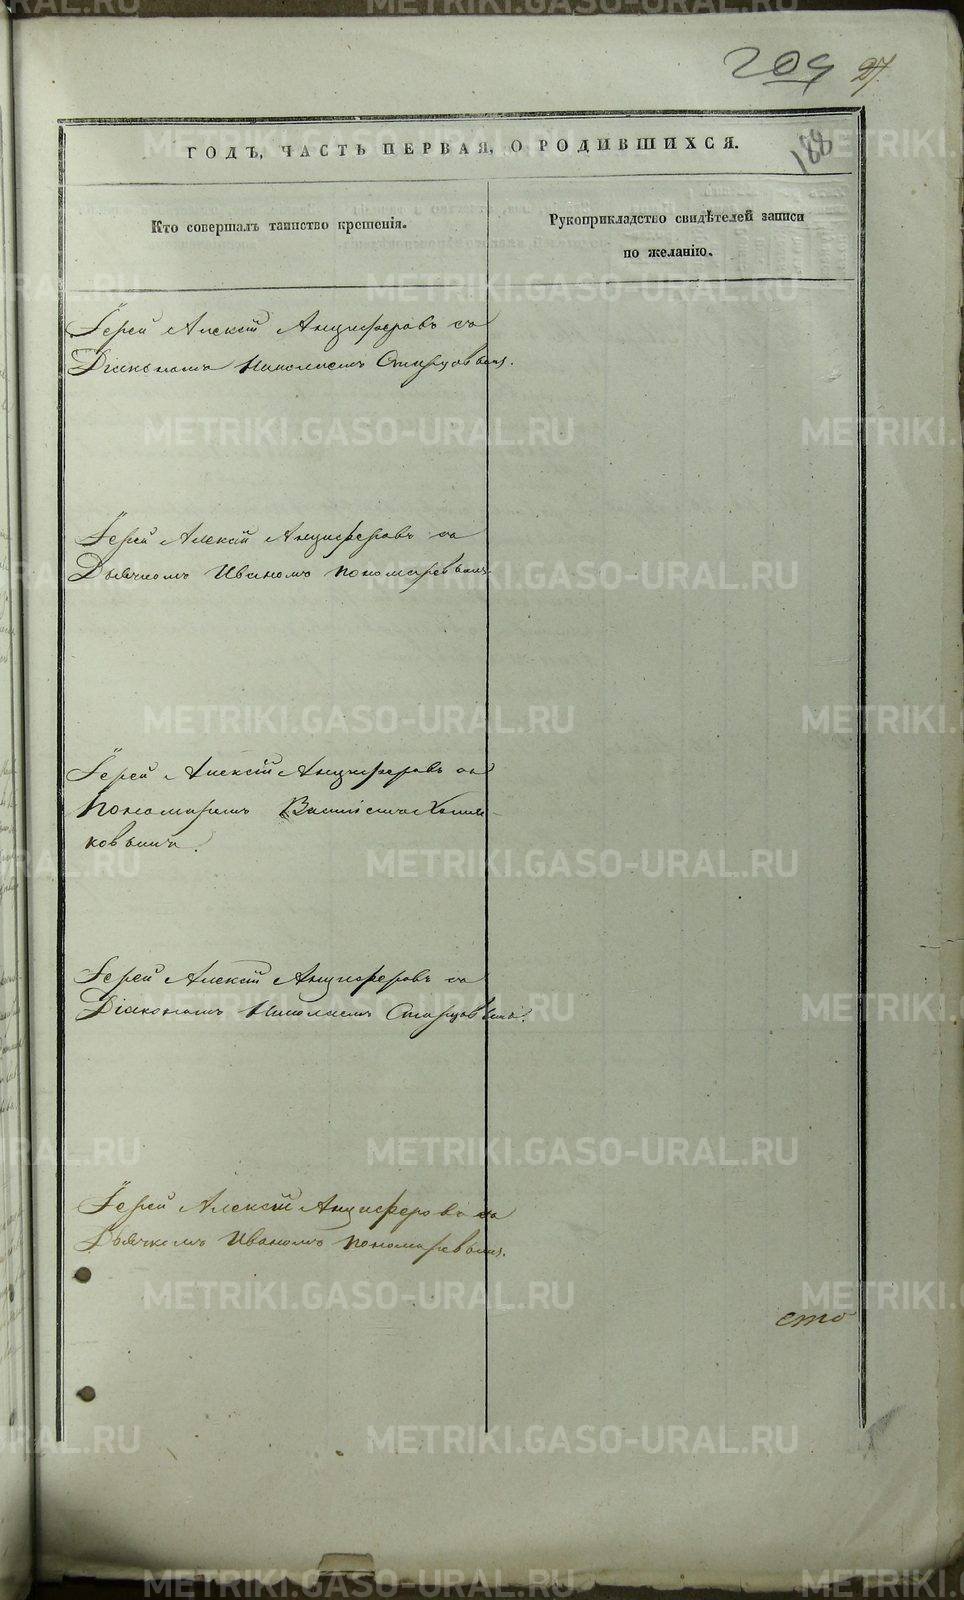 209 27
188
ГОДЪ, ЧАСТЬ ПЕРВАЯ, О РОДИВШИХСЯ.
Кто совершалъ таинство крещенія.
Рукоприкладство свидѣтелей записи
по желанію.
Іерей Алексій Анциферовъ съ
Діакономъ Николаемъ Старцовымъ.
Іерей Алексій Анциферовъ съ
Дьячкомъ Иваномъ Пономаревымъ
Іерей Алексій Анциферовъ съ
Пономаремъ Василіемъ
ковымъ.
Іерей Алексій Анциферовъ съ
Діакономъ Николаемъ Старцовымъ.
Іерей Алексій Анциферовъ съ
Дьячкомъ Иваномъ Пономаревымъ.
сто
METRIKI.GASO-URAL.RU